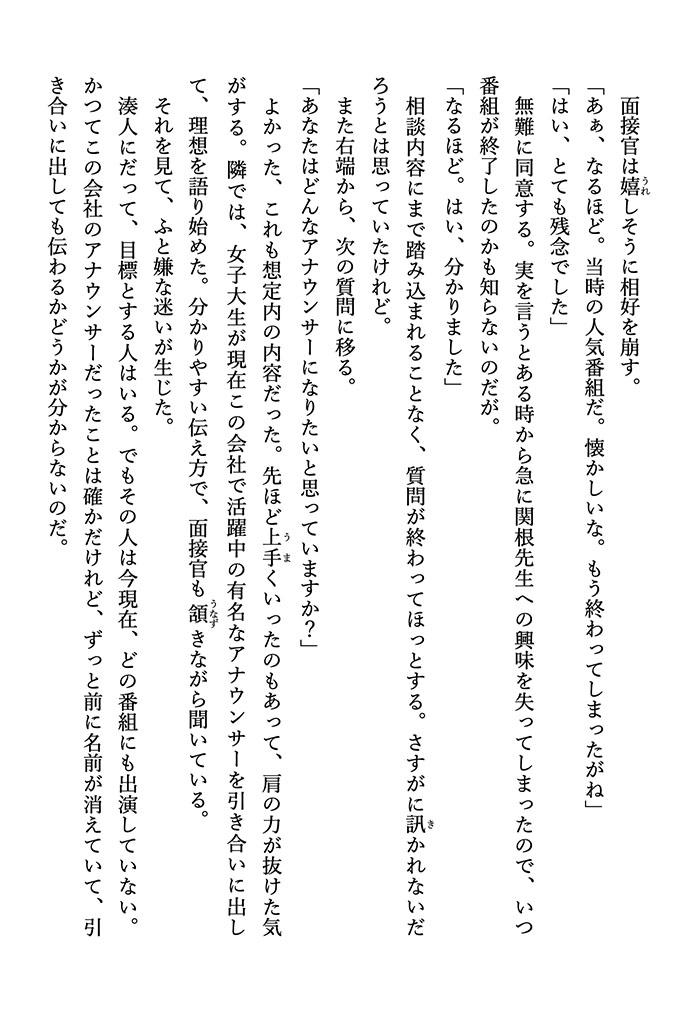 面接官は嬉しそうに相好を崩す。
「あぁ、なるほど。当時の人気番組だ。懐かしいな。もう終わってしまったがね」
「はい、とても残念でした」
無難に同意する。実を言うとある時から急に関根先生への興味を失ってしまったので、いつ
番組が終了したのかも知らないのだが。
「なるほど。はい、分かりました」
相談内容にまで踏み込まれることなく、質問が終わってほっとする。さすがに訊かれないだ
ろうとは思っていたけれど。
また右端から、次の質問に移る。
「あなたはどんなアナウンサーになりたいと思っていますか？」
よかった、これも想定内の内容だった。先ほど上手くいったのもあって、肩の力が抜けた気
がする。隣では、女子大生が現在この会社で活躍中の有名なアナウンサーを引き合いに出し
て、理想を語り始めた。分かりやすい伝え方で、面接官も頷きながら聞いている。
それを見て、ふと嫌な迷いが生じた。
湊人にだって、目標とする人はいる。でもその人は今現在、どの番組にも出演していない。
かつてこの会社のアナウンサーだったことは確かだけれど、ずっと前に名前が消えていて、引
き合いに出しても伝わるかどうかが分からないのだ。